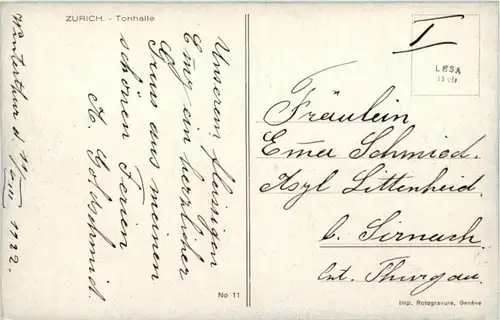 ZURICH. - Tonhalle
Winterthur d.
1922.
Unserem fleissigen
Emy ein herzlicher
Gruss aus meinen
schönen Ferien
H. Goldschmid.
No 11
I
LESA
Fräulein
Emma Schmied.
Asyl Littenheid.
b. Sirnach.
Ct. Thurgau.
Imp. Rotogravure, Genève